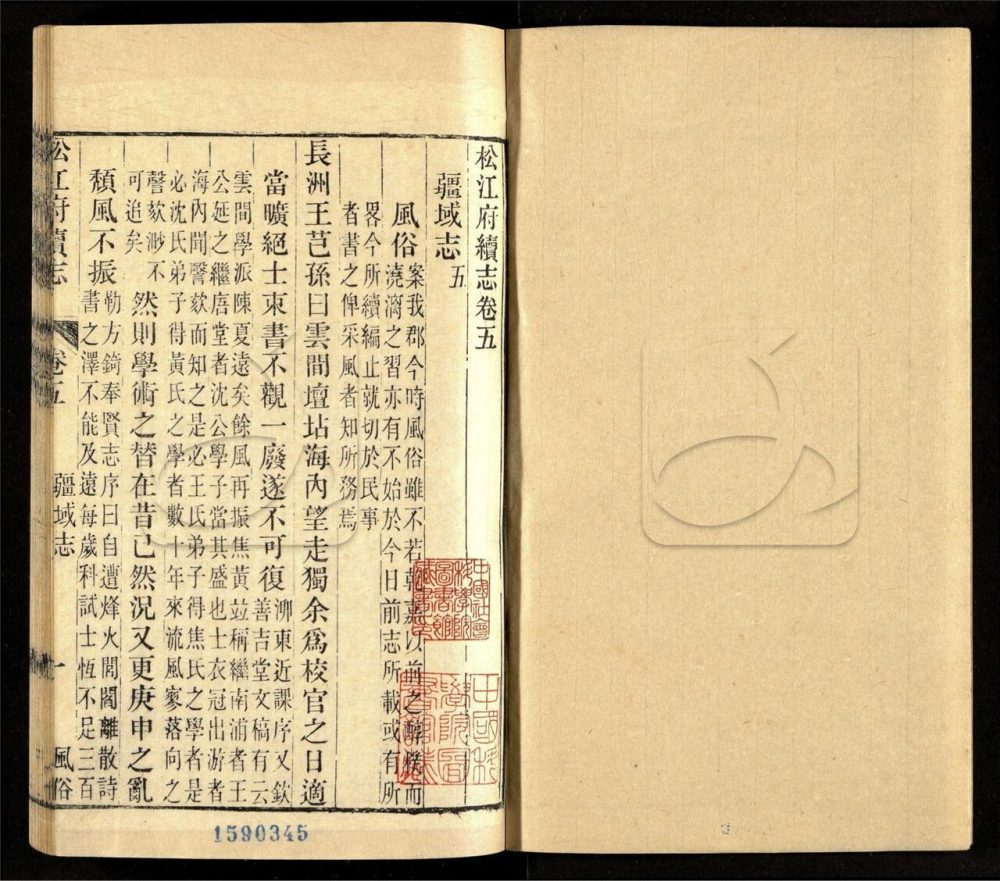 松江府續志卷五
疆域志五
風俗
案我郡今時風俗雖不若乾嘉以前之醇樸而
澆漓之習亦有不始於今日前志所載或有所
畧今所續編止就切於民事
者書之俾采風者知所務焉
長洲王芑孫曰雲間壇坫海內望走獨余爲校官之日適
當曠絕士束書不觀一廢遂不可復
泖東近課序又欽
善吉堂文稿有云
雲間學派陳夏遠矣餘風再振焦黃竝稱繼南浦者王
公延之繼唐堂者沈公學子當其盛也士衣冠出游者
海內聞謦欬而知之是必王氏弟子得焦氏之學者是
必沈氏弟子得黃氏之學者數十年來流風寥落向之
謦欬渺不
可追矣
然則學術之替在昔已然況又更庚申之亂
頹風不振
勒方錡奉賢志序曰自遭烽火閭閻離散詩
書之澤不能及遠每歲科試士恆不足三百
松江府續志
卷五
疆域志
一
風俗
中國社會
科學院
圖書館
1590345